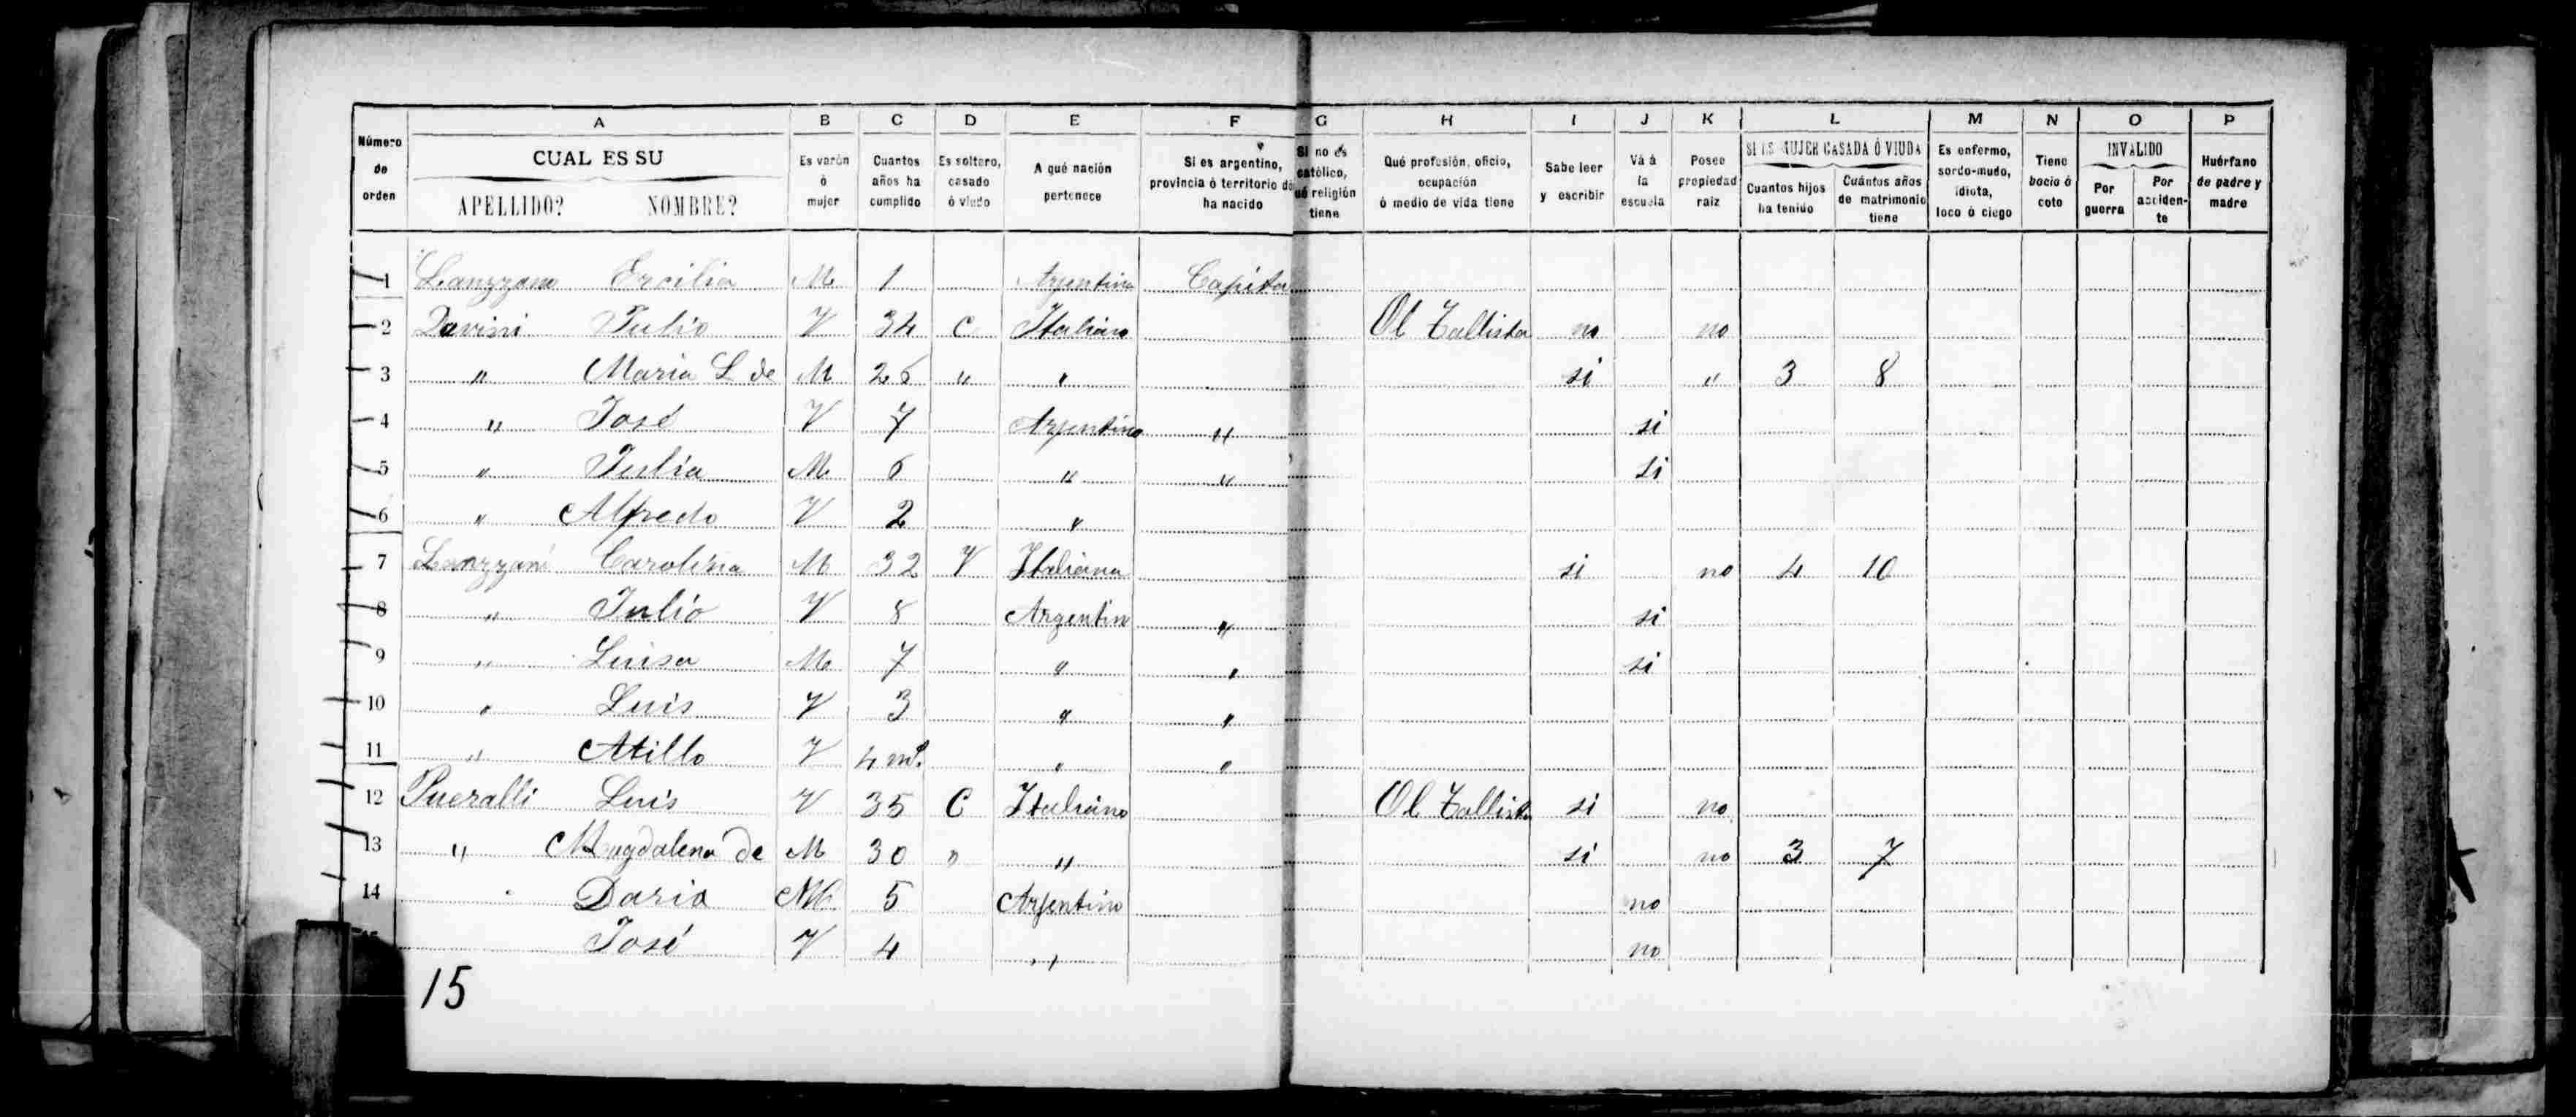 A B C D E F G H I J K L M N O P
Número de orden
CUAL ES SU
APELLIDO? NOMBRE?
Es varón ó mujer
Cuantos años ha cumplido
Es soltero, casado ó viudo
A qué nación pertenece
Si es argentino, provincia ó territorio do ha nacido
Si no es católico, ué religión tiene
Qué profesión, oficio, ocupación ó medio de vida tiene
Sabe leer y escribir
Vá á la escuela
Posee propiedad raiz
SI ES MUJER CASADA Ó VIUDA
Cuantos hijos ha tenido
Cuántos años de matrimonio tiene
Es enfermo, sordo-mudo, idiota, loco ó ciego
Tiene bocio ó coto
INVALIDO
Por guerra
Por acciden-te
Huérfano de padre y madre
1 Lanzzani Ercilia M 1 Argentina Capital
2 Davini Julio V 34 C Italiano Ol Tallista no no
3 " Maria L de M 26 " " si " 3 8
4 " José V 7 Argentino " si
5 " Julia M 6 " " si
6 " Alfredo V 2 "
7 Lanzzani Carolina M 32 V Italiana si no 4 10
8 " Julio V 8 Argentino " si
9 " Luisa M 7 " " si
10 " Luis V 3 " "
11 " Atillo V 4 ms. " "
12 Pueralli Luis V 35 C Italiano Ol Tallista si no
13 " Magdalena de M 30 " " si no 3 7
14 " Daria M 5 Argentino no
José V 4 " no
15